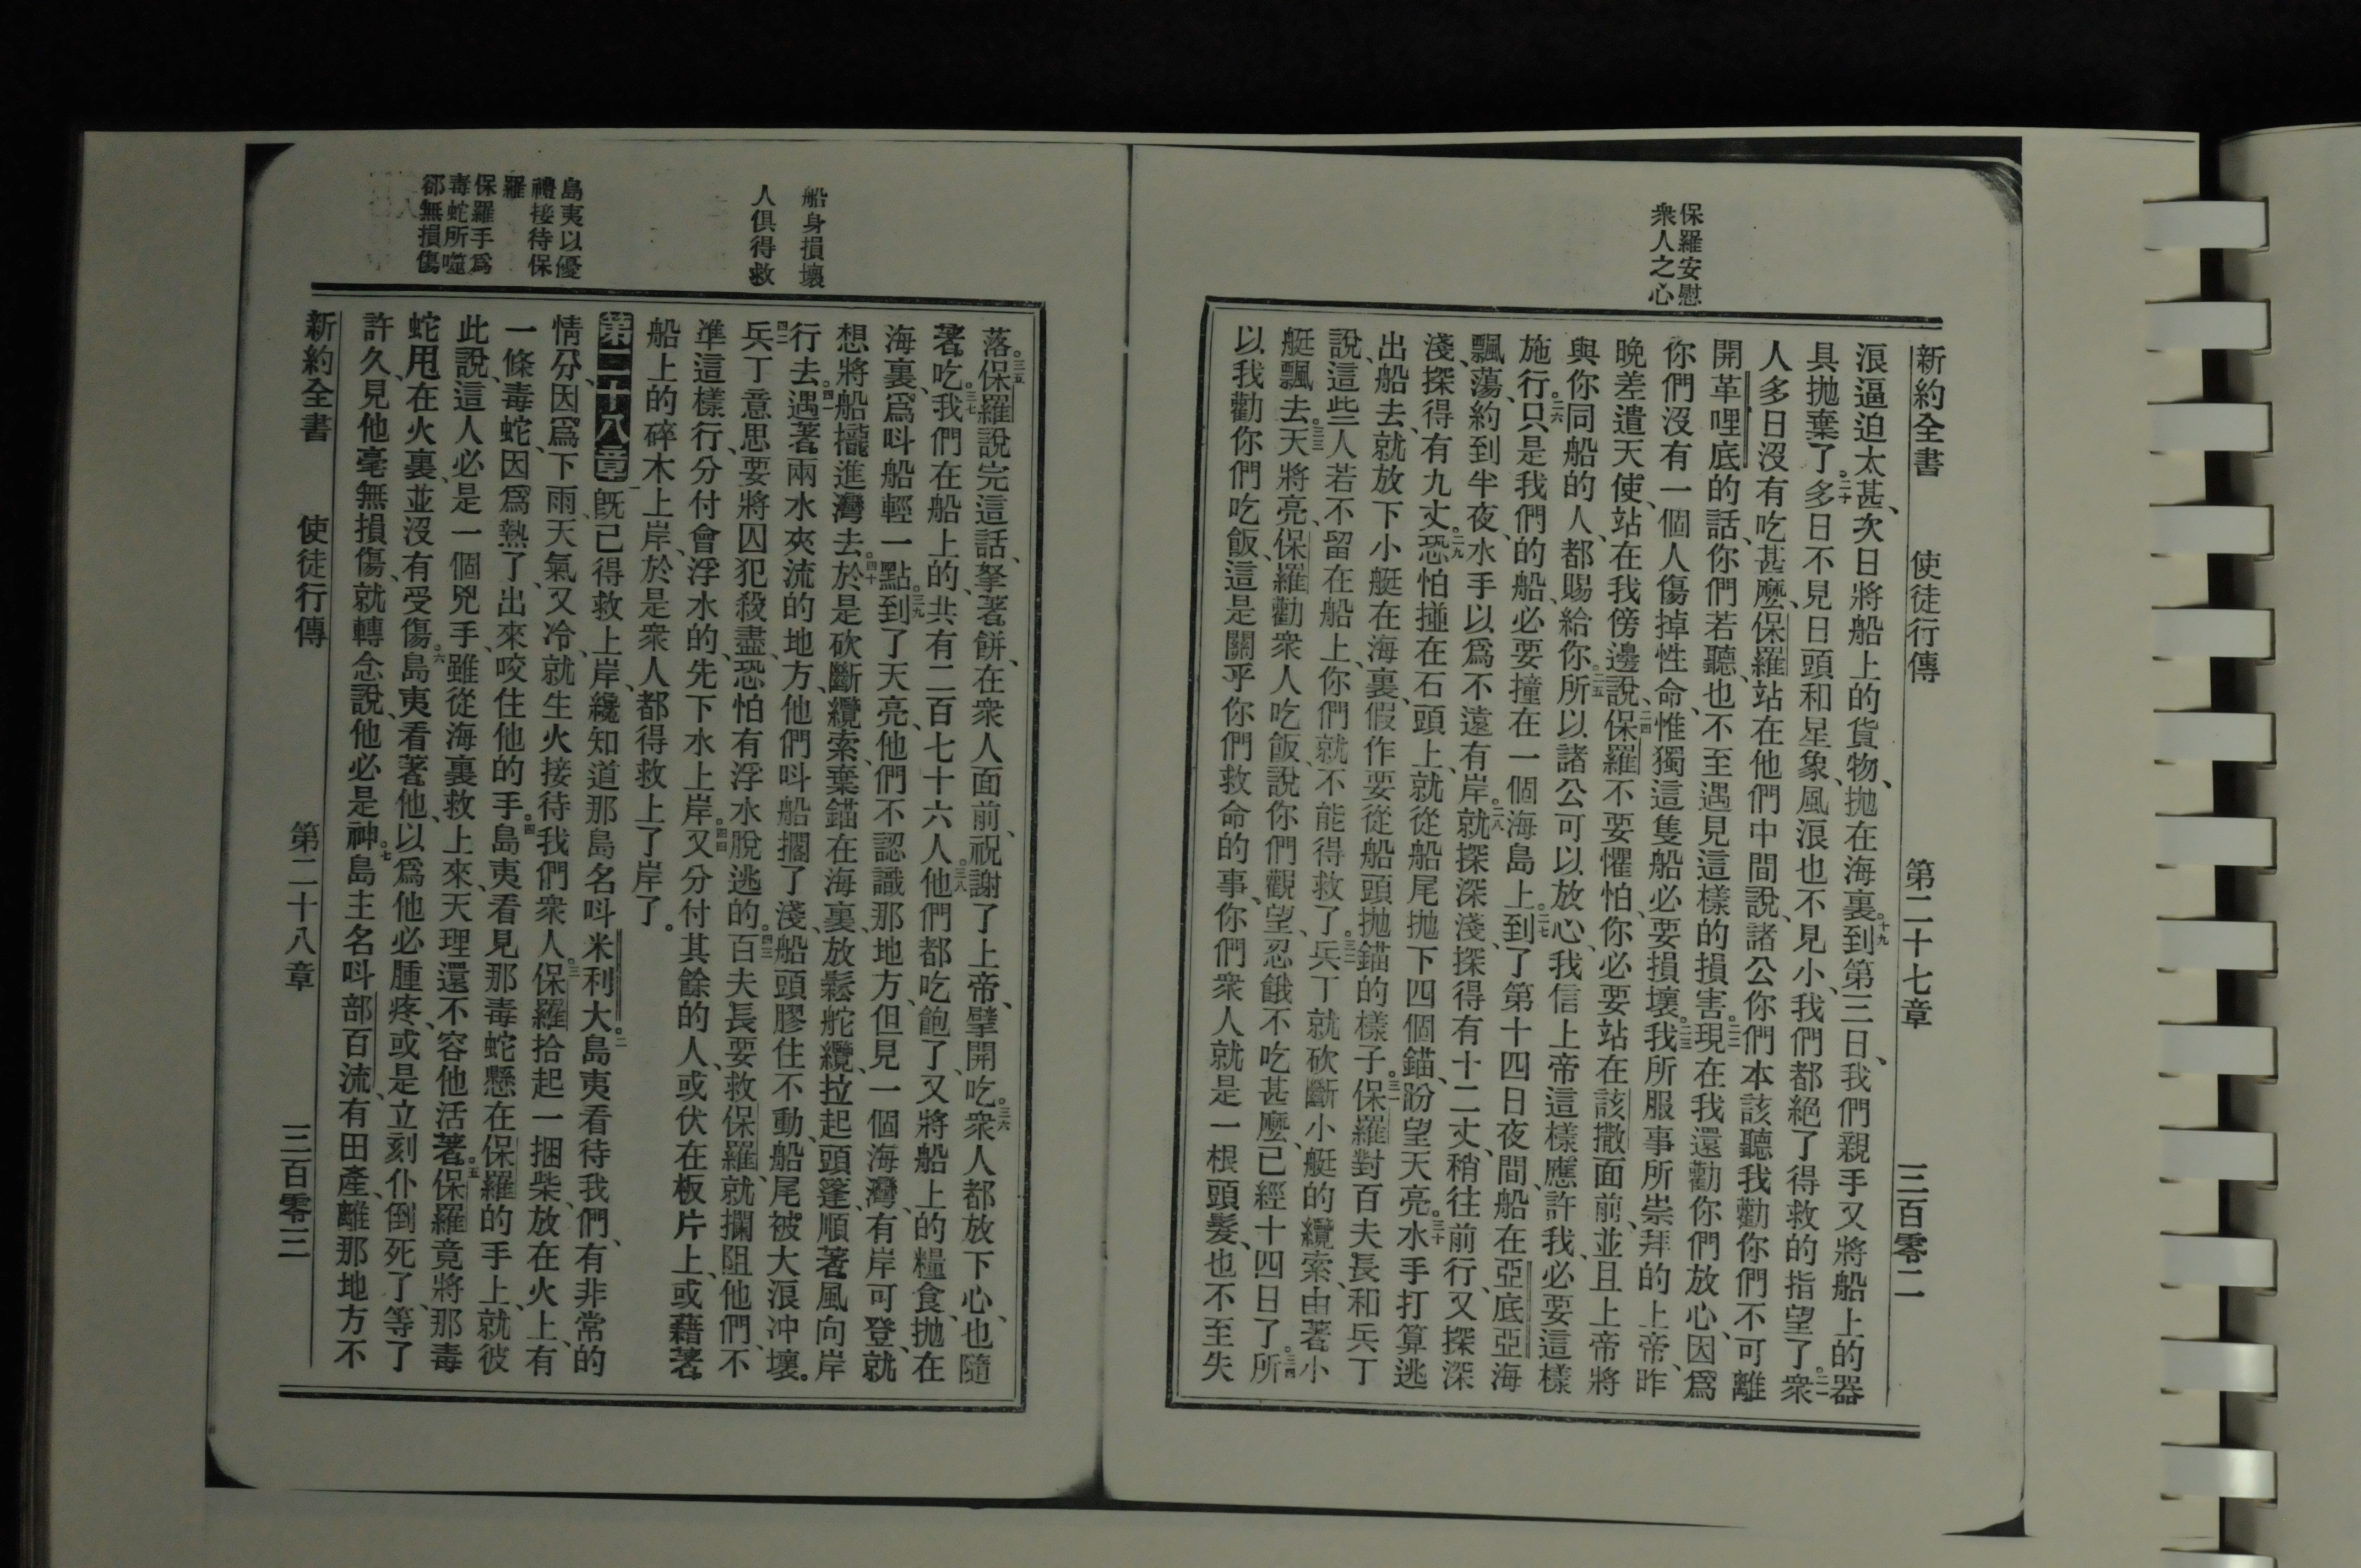 保羅安慰
衆人之心
新約全書 使徒行傳 第二十七章 三百零二
浪逼迫太甚、次日將船上的貨物、抛在海裏。十九到第三日、我們親手又將船上的器
具抛棄了。二十多日不見日頭和星象、風浪也不見小、我們都絕了得救的指望了。二一衆
人多日沒有吃甚麼、保羅站在他們中間說、諸公你們本該聽我勸你們不可離
開革哩底的話、你們若聽、也不至遇見這樣的損害。二二現在我還勸你們放心、因爲
你們沒有一個人傷掉性命、惟獨這隻船必要損壞。二三我所服事所崇拜的上帝、昨
晚差遣天使、站在我傍邊說、二四保羅不要懼怕、你必要站在該撒面前、並且上帝將
與你同船的人、都賜給你。二五所以諸公可以放心、我信上帝這樣應許我、必要這樣
施行。二六只是我們的船、必要撞在一個海島上。二七到了第十四日夜間、船在亞底亞海
飄蕩、約到半夜、水手以爲不遠有岸。二八就探深淺、探得有十二丈、稍往前行、又探深
淺、探得有九丈。二九恐怕撞在石頭上、就從船尾抛下四個錨、盼望天亮。三十水手打算逃
出船去、就放下小艇在海裏、假作要從船頭抛錨的樣子。三一保羅對百夫長和兵丁
說、這些人若不留在船上、你們就不能得救了。三二兵丁就砍斷小艇的纜索、由著小
艇飄去。三三天將亮、保羅勸衆人吃飯、說你們觀望、忍餓不吃甚麼、已經十四日了。三四所
以我勸你們吃飯、這是關乎你們救命的事、你們衆人就是一根頭髮、也不至失
船身損壞
人俱得救
島夷以優
禮接待保
羅
保羅手爲
毒蛇所噬
卻無損傷
落。三五保羅說完這話、拏著餅、在衆人面前、祝謝了上帝、擘開吃。三六衆人都放下心、也隨
著吃。三七我們在船上的、共有二百七十六人。三八他們都吃飽了、又將船上的糧食、抛在
海裏、爲呌船輕一點。三九到了天亮、他們不認識那地方、但見一個海灣、有岸可登、就
想將船攏進灣去。四十於是砍斷纜索、棄錨在海裏、放鬆舵纜、拉起頭篷、順著風向岸
行去。四一遇著兩水夾流的地方、他們呌船擱了淺、船頭膠住不動、船尾被大浪冲壞。
四二兵丁意思要將囚犯殺盡、恐怕有浮水脫逃的。四三百夫長要救保羅、就攔阻他們、不
準這樣行、分付會浮水的、先下水上岸。四四又分付其餘的人、或伏在板片上、或藉著
船上的碎木上岸、於是衆人都得救上了岸了。
第二十八章 一旣已得救上岸、纔知道那島名呌米利大。二島夷看待我們、有非常的
情分、因爲下雨、天氣又冷、就生火接待我們衆人。三保羅拾起一捆柴、放在火上、有
一條毒蛇、因爲熱了、出來咬住他的手。四島夷看見那毒蛇懸在保羅的手上、就彼
此說、這人必是一個兇手、雖從海裏救上來、天理還不容他活著。五保羅竟將那毒
蛇甩在火裏、並沒有受傷。六島夷看著他、以爲他必腫疼、或是立刻仆倒死了、等了
許久、見他毫無損傷、就轉念說、他必是神。七島主名呌部百流、有田產、離那地方不
新約全書 使徒行傳 第二十八章 三百零三